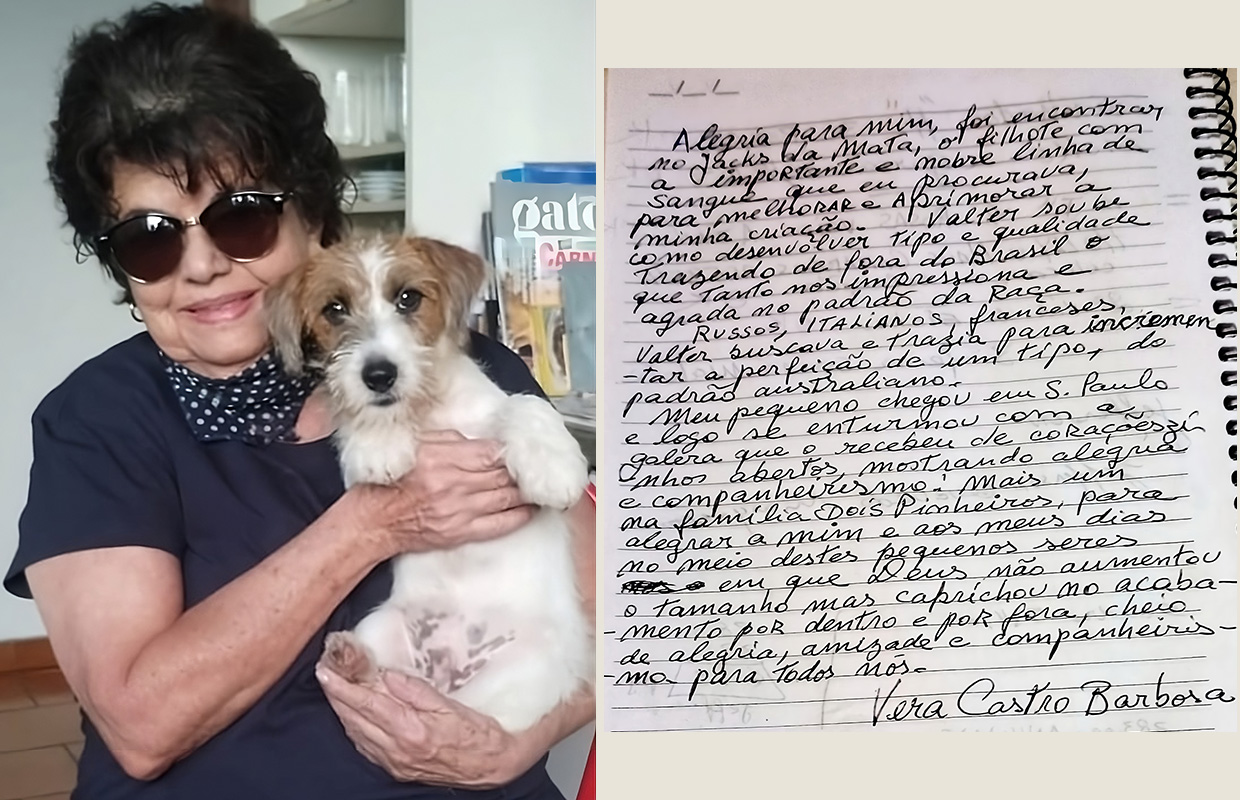 gato
CARN
Alegria para mim, foi encontrar
no Jacks da Mata, o filhote com
a importante e nobre linha de
sangue que eu procurava,
para melhorar e aprimorar a
minha criação. Valter soube
como desenvolver tipo e qualidade
trazendo de fora do Brasil o
que tanto nos impressiona e
agrada no padrão da Raça.
Russos, ITALIANOS franceses,
Valter buscava e trazia para incremen
-tar a perfeição de um tipo, do
padrão australiano.
Meu pequeno chegou em S. Paulo
e logo se enturmou com a
galera que o recebeu de coraçõeszi
nhos abertos, mostrando alegria
e companheirismo! Mais um
na família Dois Pinheiros, para
alegrar a mim e aos meus dias
no meio destes pequenos seres
em que Deus não aumentou
o tamanho mas caprichou no acaba-
-mento por dentro e por fora, cheio
de alegria, amizade e companheiris-
-mo para todos nós.
Vera Castro Barbosa